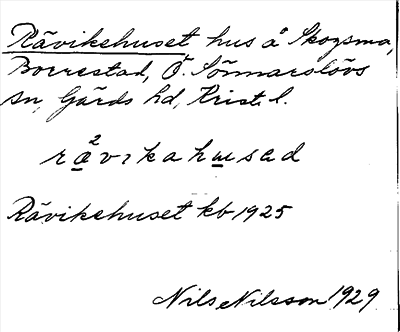 Råvikehuset, hus å Skogsma,
Borrestad, Ö. Sönnarslövs
sn, Gärds hd, Krist. l.
rå²vikahusəd
Råvikehuset kb 1925
Nils Nilsson 1929